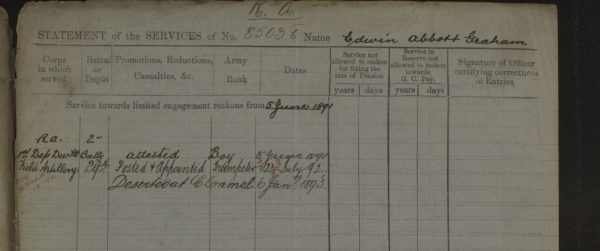 R. A.
STATEMENT of the SERVICES of No. 85036 Name Edwin Abbott Graham
Corps in which served
Battn. or Depôt
Promotions, Reductions, Casualties, &c.
Army Rank
Dates
Service not allowed to reckon for fixing the rate of Pension
years days
Service in Reserve not allowed to reckon towards G. C. Pay.
years days
Signature of Officer certifying correctness of Entries
Service towards limited engagement reckons from 5 June 1891
R.a. 2-
attested Boy 5 June 1891
Field Artillery Posted & Appointed Trumpeter July 92
Deserted at Clonmel 6 Jany 1893.